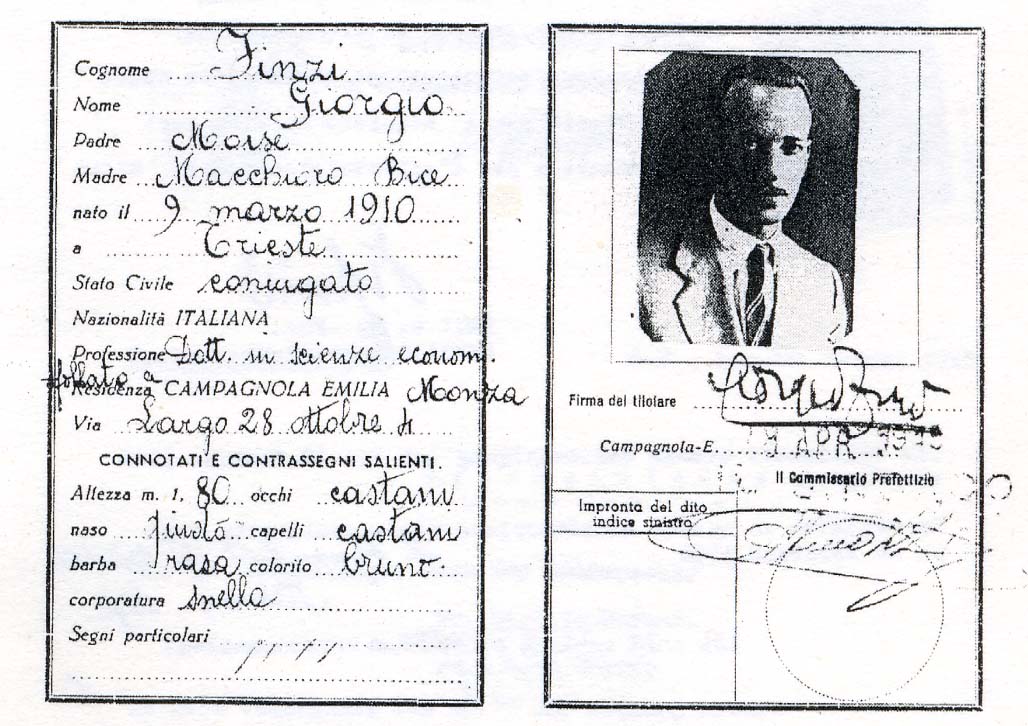 Cognome Finzi
Nome Giorgio
Padre Moisè
Madre Macchioro Bice
nato il 9 marzo 1910
a Trieste
Stato Civile coniugato
Nazionalità ITALIANA
Professione Dott. in scienze econom.
sfollato a
Residenza CAMPAGNOLA EMILIA Monza
Via Largo 28 ottobre 4
CONNOTATI E CONTRASSEGNI SALIENTI.
Altezza m. 1, 80 occhi castani
naso giusto capelli castani
barba rasa colorito bruno
corporatura snella
Segni particolari
Firma del titolare
Campagnola-E. APR
Il Commissario Prefettizio
Impronta del dito
indice sinistro